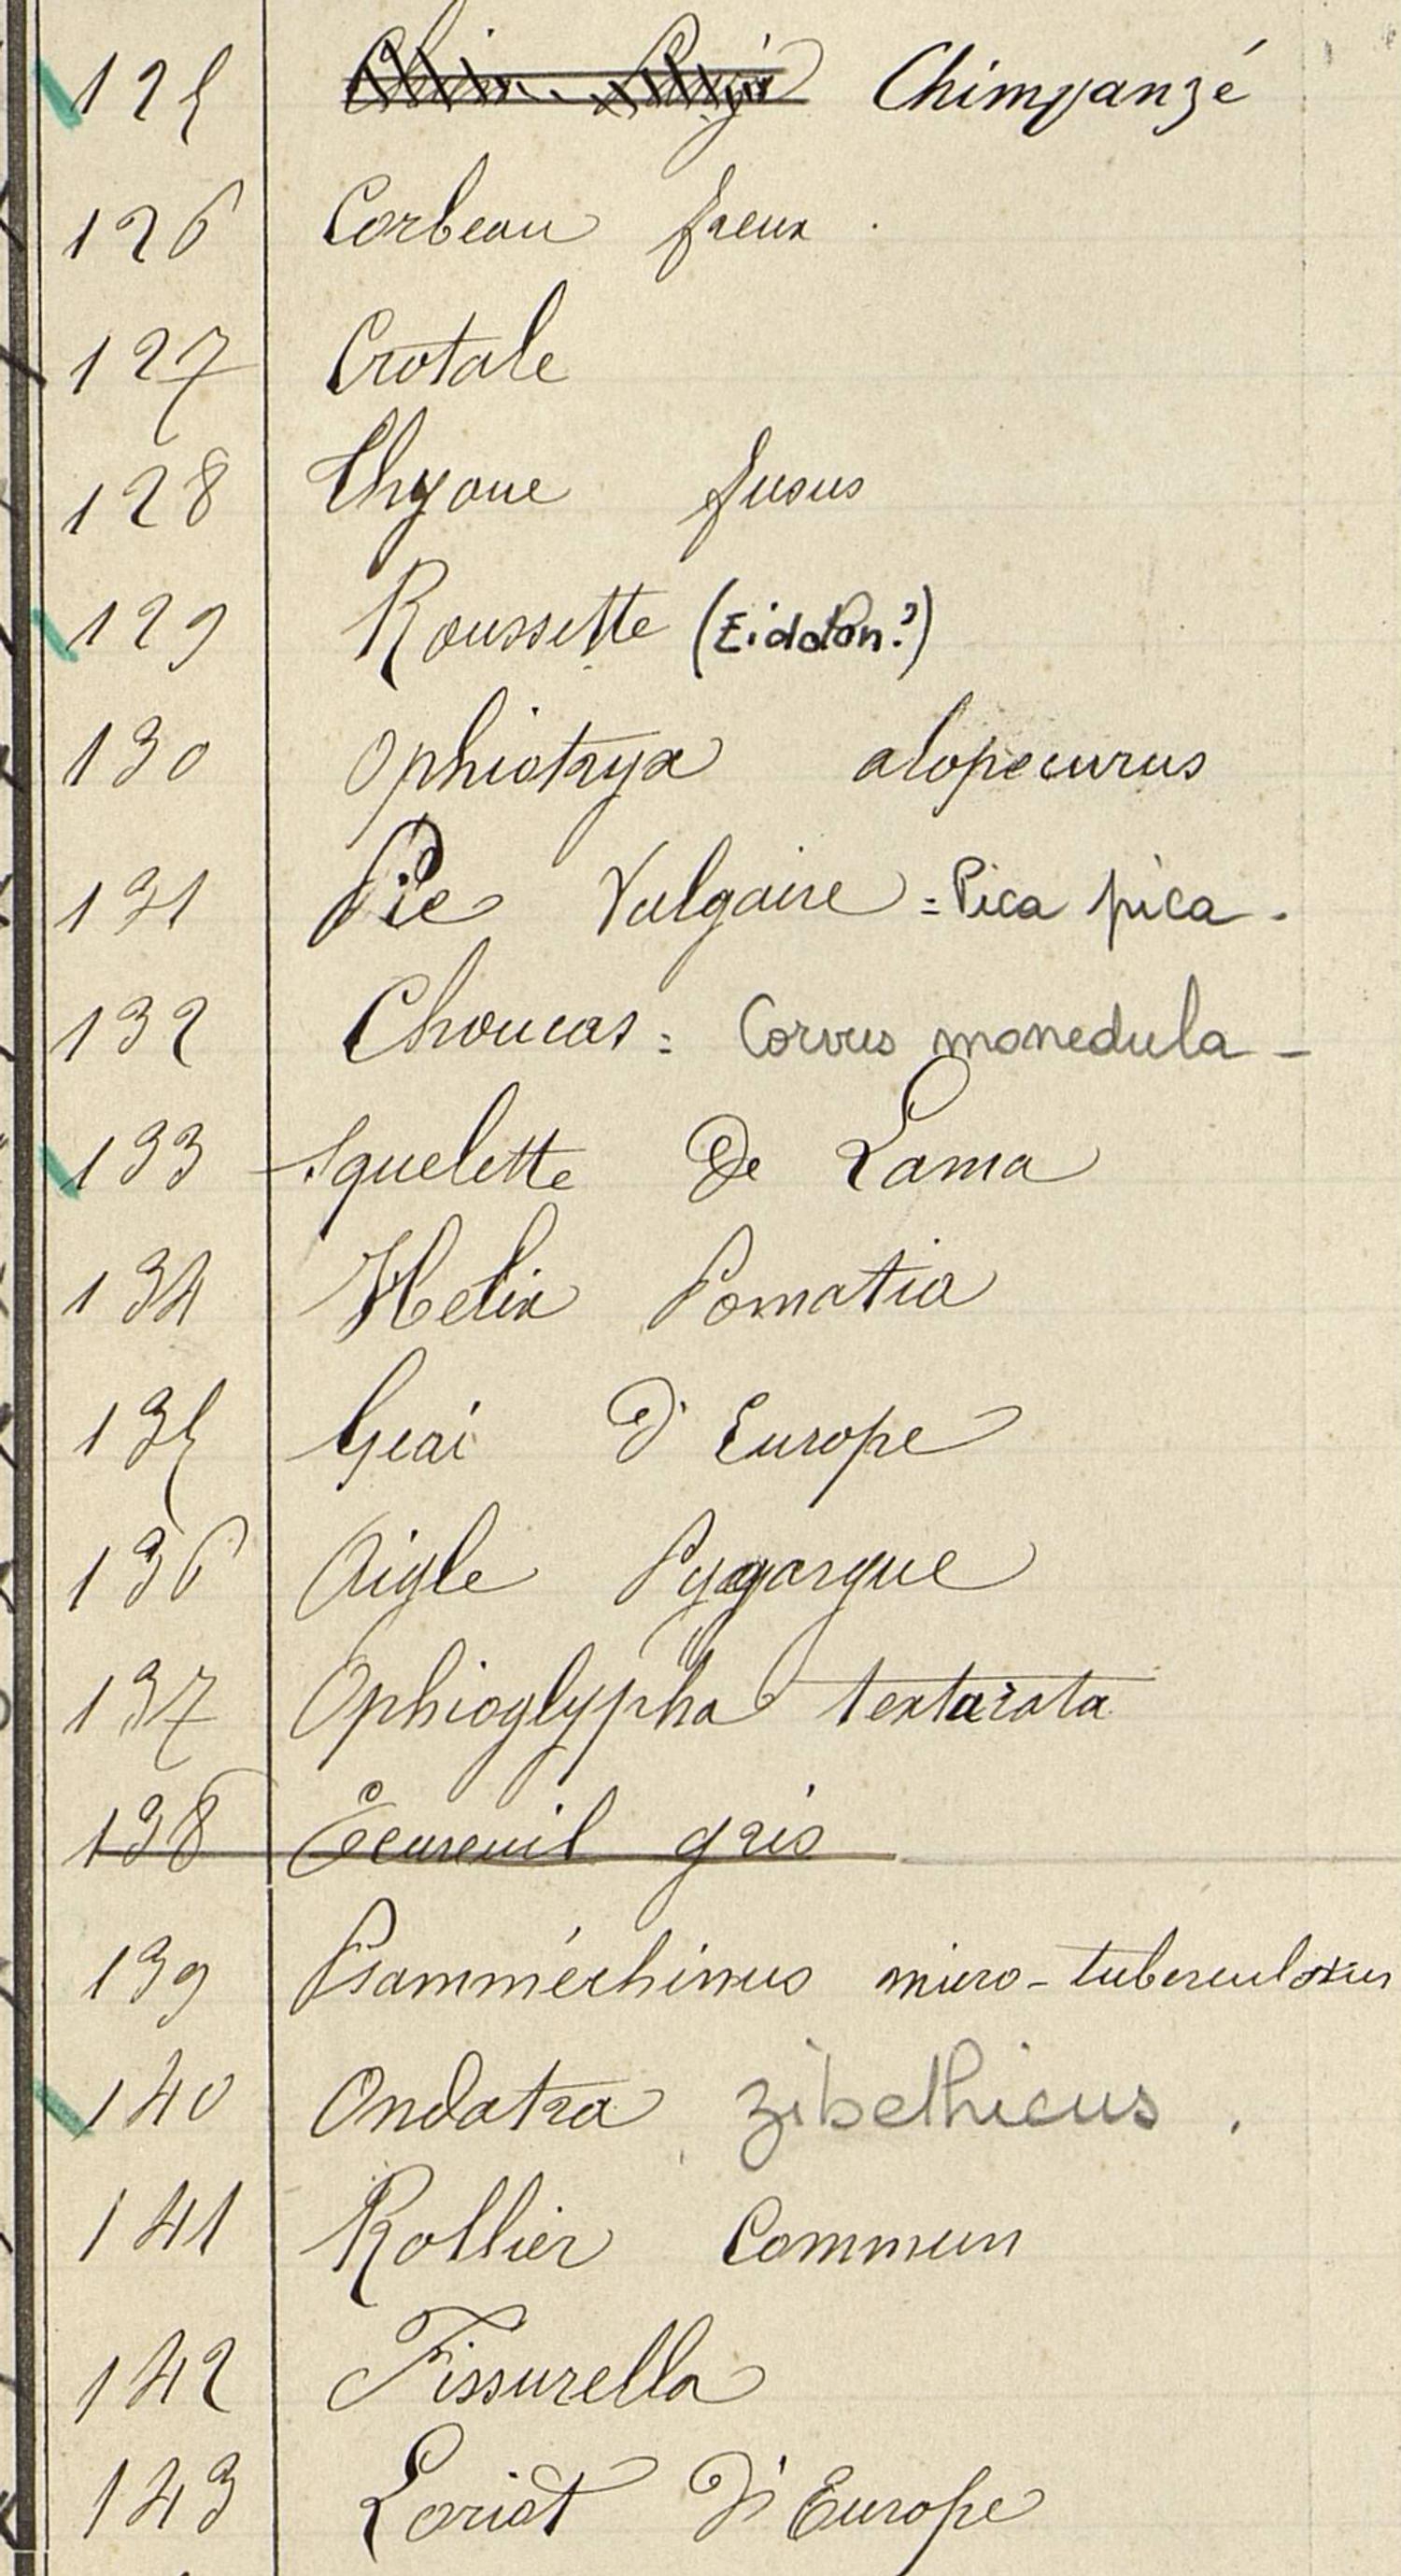 125 Chimpanzé
126 Corbeau freux .
127 Crotale
128 Thyone fusus
129 Roussette (Eidolon?)
130 Ophiotryx alopecurus
131 Pie Vulgaire = Pica pica -
132 Choucas = Corvus monedula -
133 Squelette De Lama
134 Helix Pomatia
135 Geai D'Europe
136 Aigle Pygargue
137 Ophioglypha textarata
138 Écureuil gris
139 Psamméchinus micro-tuberculosus
140 Ondatra zibethicus .
141 Rollier Commun
142 Fissurella
143 Loriot D'Europe